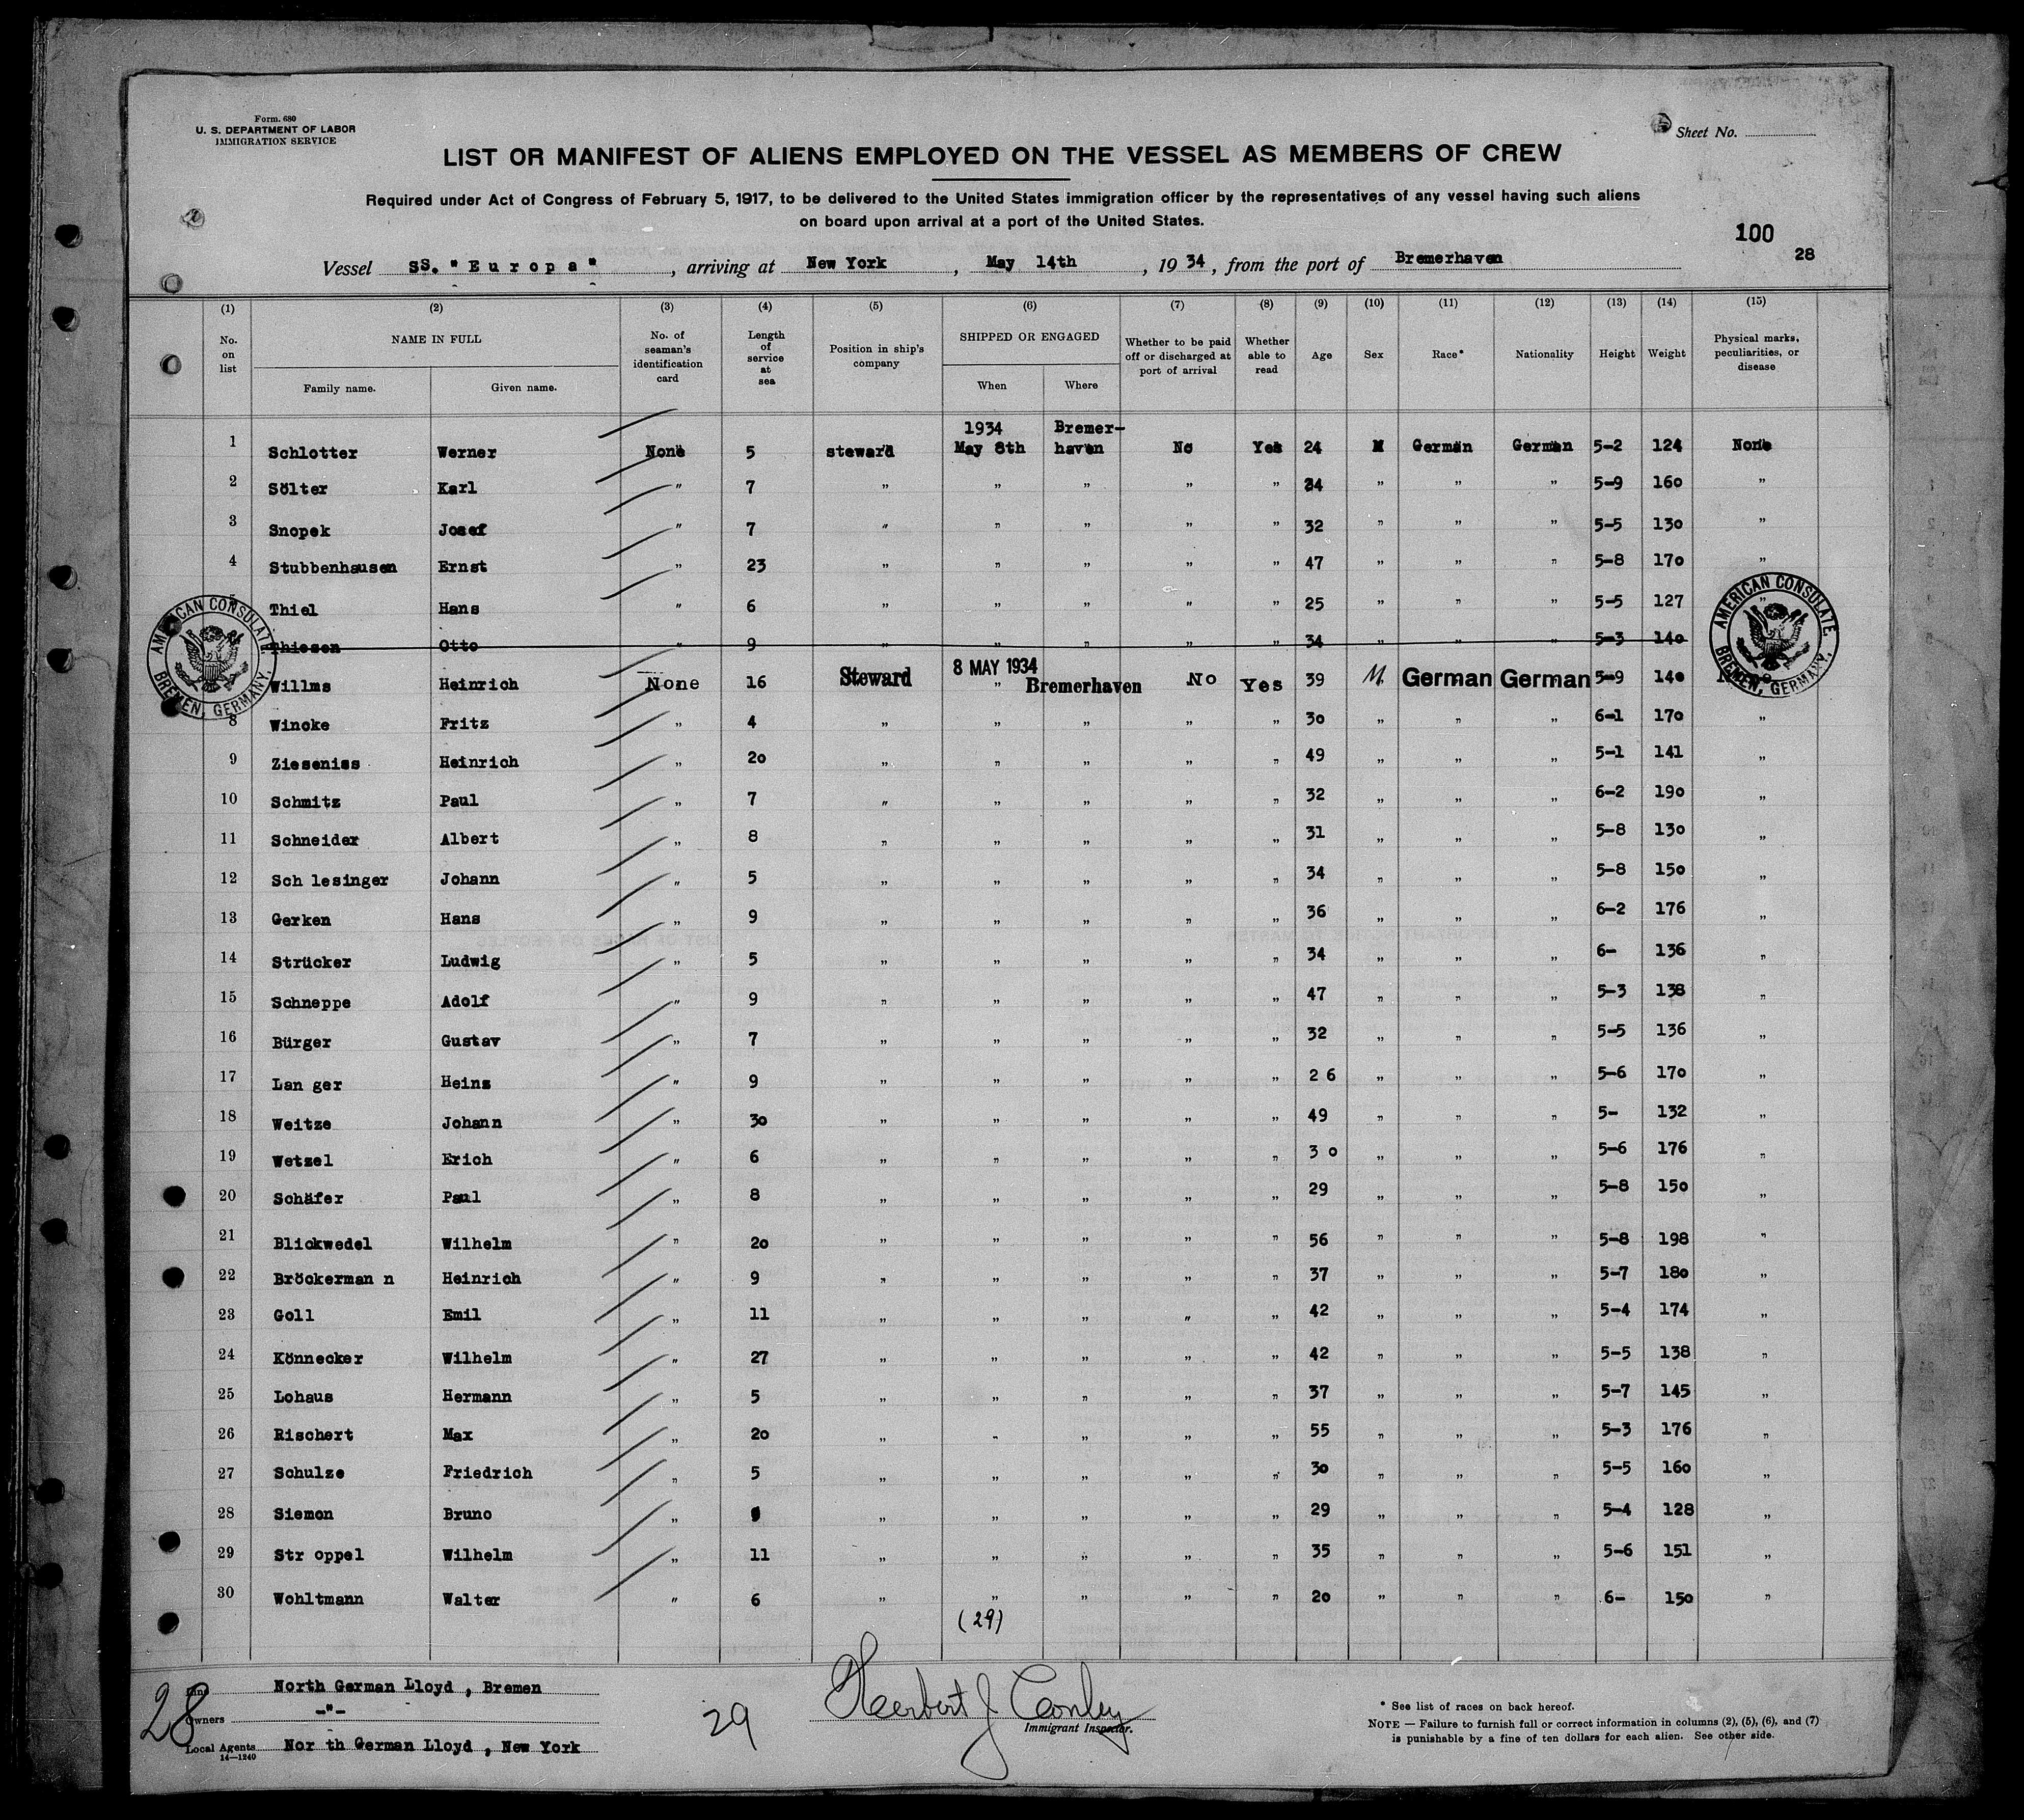 Form. 680
U. S. DEPARTMENT OF LABOR
IMMIGRATION SERVICE
Sheet No.
LIST OR MANIFEST OF ALIENS EMPLOYED ON THE VESSEL AS MEMBERS OF CREW
Required under Act of Congress of February 5, 1917, to be delivered to the United States immigration officer by the representatives of any vessel having such aliens
on board upon arrival at a port of the United States.
100
28
Vessel SS. "Europa", arriving at New York, May 14th, 1934, from the port of Bremerhaven
(1) (2) (3) (4) (5) (6) (7) (8) (9) (10) (11) (12) (13) (14) (15)
No. on list NAME IN FULL Family name. Given name. No. of seaman's identification card Length of service at sea Position in ship's company SHIPPED OR ENGAGED When Where Whether to be paid off or discharged at port of arrival Whether able to read Age Sex Race* Nationality Height Weight Physical marks, peculiarities, or disease
1 Schlotter Werner None 5 steward 1934 May 8th Bremerhaven No Yes 24 M German German 5-2 124 None
2 Sölter Karl " 7 " " " " " 24 " " " 5-9 160 "
3 Snopek Josef " 7 " " " " " 32 " " " 5-5 130 "
4 Stubbenhausen Ernst " 23 " " " " " 47 " " " 5-8 170 "
Thiel Hans " 6 " " " " " 25 " " " 5-5 127 "
Thiesen Otto " 9 " " " " " 34 " " " 5-3 140
Willms Heinrich None 16 Steward 8 MAY 1934 " Bremerhaven No Yes 39 M German German 5-9 140
8 Wincke Fritz " 4 " " " " " 30 " " " 6-1 170 "
9 Zieseniss Heinrich " 20 " " " " " 49 " " " 5-1 141 "
10 Schmitz Paul " 7 " " " " " 32 " " " 6-2 190 "
11 Schneider Albert " 8 " " " " " 31 " " " 5-8 130 "
12 Sch lesinger Johann " 5 " " " " " 34 " " " 5-8 150 "
13 Gerken Hans " 9 " " " " " 36 " " " 6-2 176 "
14 Strücker Ludwig " 5 " " " " " 34 " " " 6- 136 "
15 Schneppe Adolf " 9 " " " " " 47 " " " 5-3 138 "
16 Bürger Gustav " 7 " " " " " 32 " " " 5-5 136 "
17 Lan ger Heinz " 9 " " " " " 2 6 " " " 5-6 170 "
18 Weitze Johann " 30 " " " " " 49 " " " 5- 132 "
19 Wetzel Erich " 6 " " " " " 3 0 " " " 5-6 176 "
20 Schäfer Paul " 8 " " " " " 29 " " " 5-8 150 "
21 Blickwedel Wilhelm " 20 " " " " " 56 " " " 5-8 198 "
22 Bröckerman n Heinrich " 9 " " " " " 37 " " " 5-7 180 "
23 Goll Emil " 11 " " " " " 42 " " " 5-4 174 "
24 Könnecker Wilhelm " 27 " " " " " 42 " " " 5-5 138 "
25 Lohaus Hermann " 5 " " " " " 37 " " " 5-7 145 "
26 Rischert Max " 20 " " " " " 55 " " " 5-3 176 "
27 Schulze Friedrich " 5 " " " " " 30 " " " 5-5 160 "
28 Siemon Bruno " " " " " " 29 " " " 5-4 128 "
29 Str oppel Wilhelm " 11 " " " " " 35 " " " 5-6 151 "
30 Wohltmann Walter " 6 " " " " " 20 " " " 6- 150 "
(29)
AMERICAN CONSULATE BREMEN, GERMANY.
AMERICAN CONSULATE BREMEN, GERMANY.
28
Line North German Lloyd, Bremen
Owners -"-
Local Agents Nor th German Lloyd, New York
14-1240
29
Herbert J Conley
Immigrant Inspector.
* See list of races on back hereof.
NOTE — Failure to furnish full or correct information in columns (2), (5), (6), and (7)
is punishable by a fine of ten dollars for each alien. See other side.